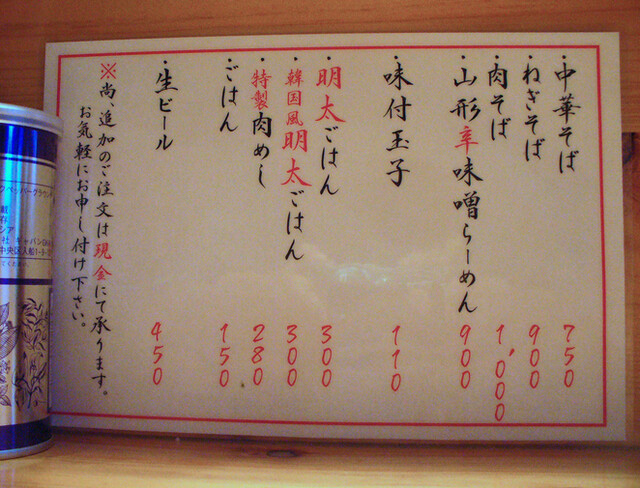 ・中華そば 750
・ねぎそば 900
・肉そば 1,000
・山形辛味噌らーめん 900
・味付玉子 110
・明太ごはん 300
・韓国風明太ごはん 300
・特製肉めし 280
・ごはん 150
・生ビール 450
※尚、追加のご注文は現金にて承ります。
お気軽にお申し付け下さい。